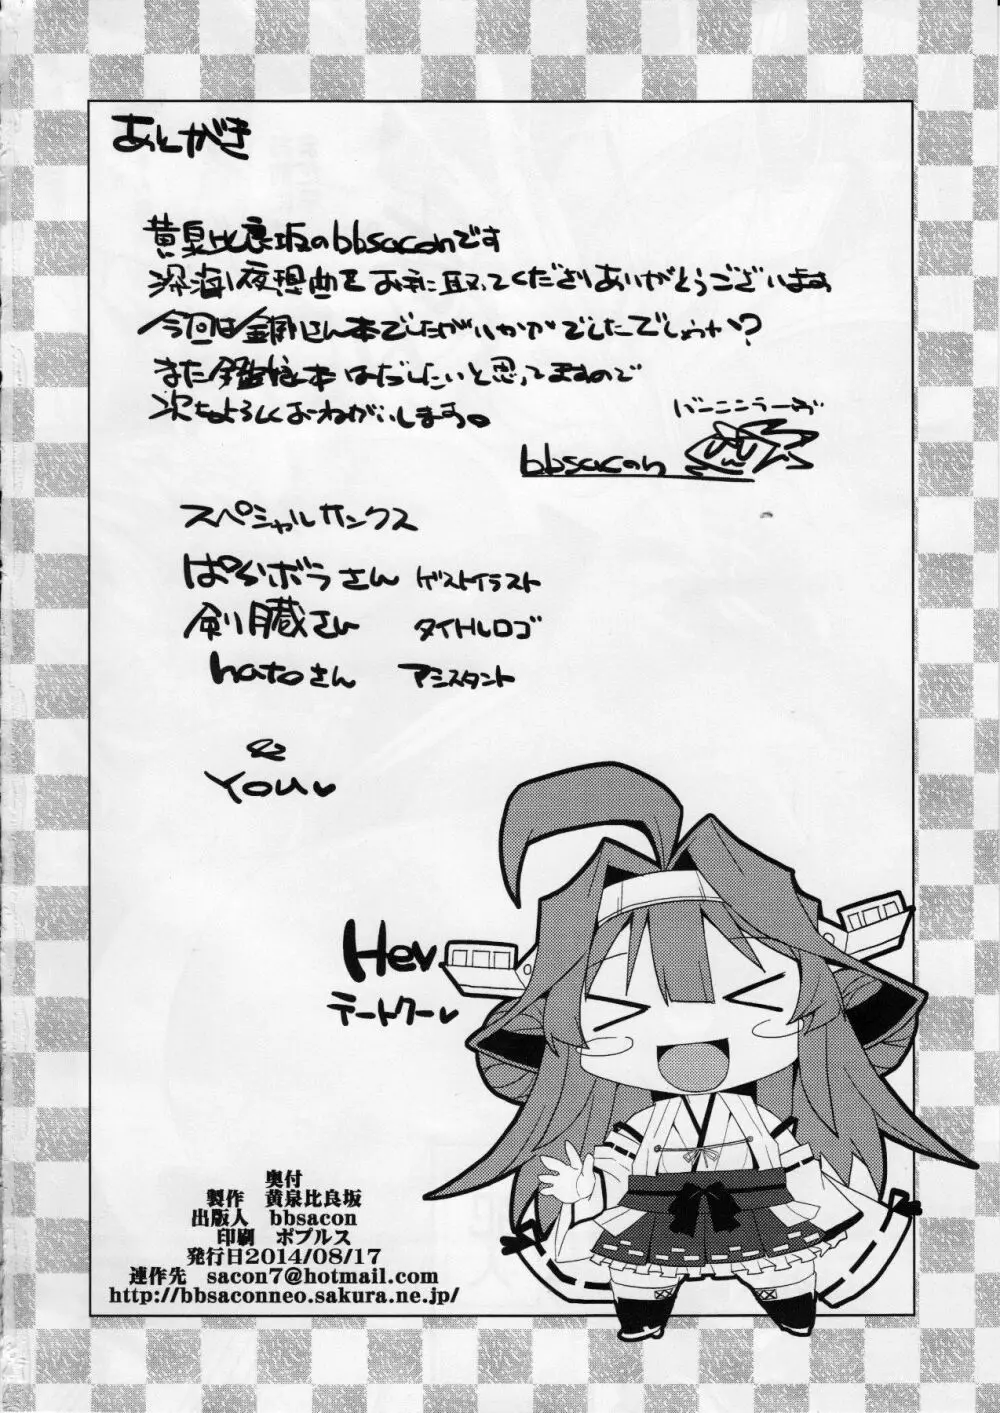 あとがき
黄泉比良坂のbbsaconです
深海夜想曲をお手に取ってくださりありがとうございます
今回は金剛さん本でしたがいかがでしたでしょうか?
また本はだしたいと思ってますので
次もよろしくおねがいします。
バーニンラーヴ
bbsacon
スペシャルサンクス
ぱらボラさん ゲストイラスト
剣月蔵さん タイトルロゴ
hatoさん アシスタント
&
YOU♥
Hey
テートクー♥
奥付
製作 黄泉比良坂
出版人 bbsacon
印刷 ポプルス
発行日2014/08/17
連作先 sacon7@hotmail.com
http://bbsaconneo.sakura.ne.jp/